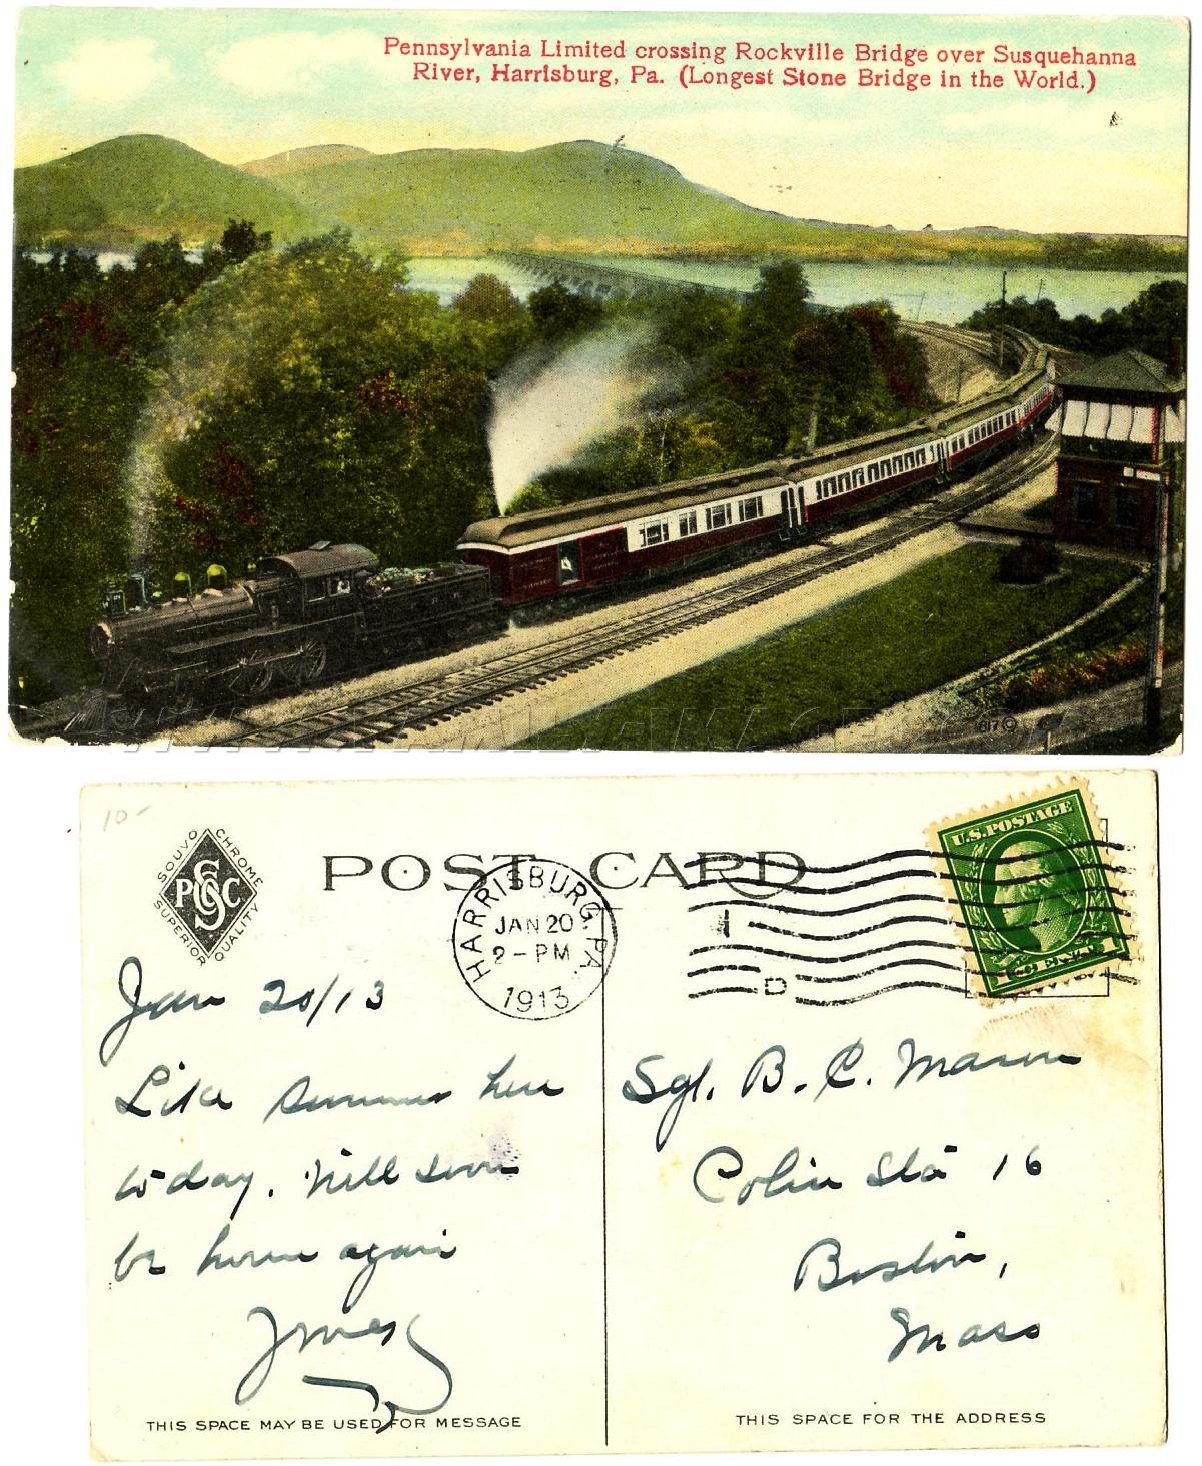 Pennsylvania Limited crossing Rockville Bridge over Susquehanna
River, Harrisburg, Pa. (Longest Stone Bridge in the World.)
617©
10-
SOUVO CHROME
PSCC
SUPERIOR QUALITY
POST CARD
HARRISBURG, PA.
JAN 20
2-PM
1913
1
D
U.S. POSTAGE
1 CENT 1
Jan 20/13
Like summer here
to day. Will soon
be home again
Jones
Sgt. B. C. Mason
Sta 16
Boston,
Mass
THIS SPACE MAY BE USED FOR MESSAGE
THIS SPACE FOR THE ADDRESS